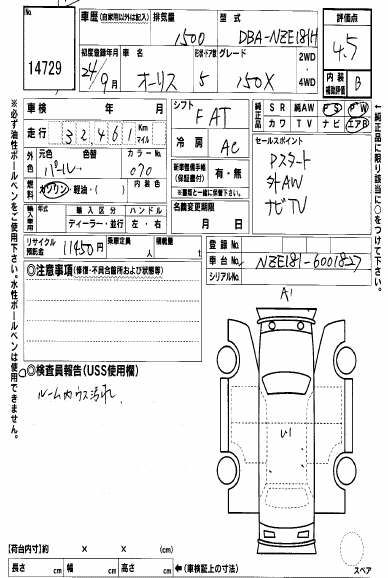 No.
14729
車歴 (自家用以外は記入)
排気量
1500
型式
DBA-NZE181H
評価点
4.5
初度登録年月
24/9月
車名
オーリス
形状・ドア数
5
グレード
150X
2WD
・
4WD
内装
補助評価
B
車検 年 月
走行
32461
Km
マイル
シフト
FAT
純正品
SR 純AW PS PW
カワ TV ナビ エアB
外色
元色
パール
色替
カラーNo.
070
冷房
AC
セールスポイント
Pスタート
外AW
ナビTV
燃料
ガソリン・軽油・( )
内装色
新車整備手帳
(保証書付)
有・無
※書類と一緒に保管下さい。
輸入車用
年式
輸入区分
ディーラー・並行
ハンドル
左・右
名義変更期限
月 日
リサイクル預託金
11450円
乗車定員
人
積載量
t
登録No.
車台No.
NZE181-6001827
シリアルNo.
◎注意事項 (修復・不具合箇所および状態等)
A1
U1
◎検査員報告(USS使用欄)
ルーム内ウス汚れ
【荷台内寸】約 × × (cm)
長さ cm 幅 cm 高さ cm
←(車検証上の寸法)
スペア
※必ず油性ボールペンをご使用下さい。水性ボールペンは使用できません。
←純正品に限り該当に○をつけて下さい。